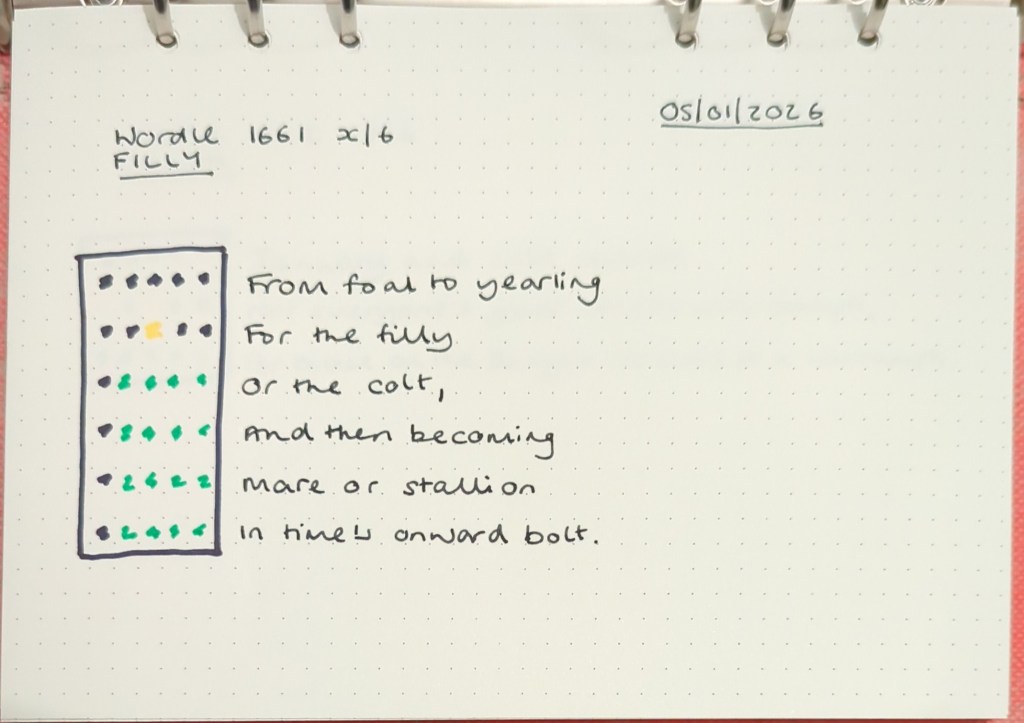 05/01/2026
Wordle 1661 x/6
FILLY
From foal to yearling
For the filly
Or the colt,
And then becoming
Mare or stallion
In time's onward bolt.